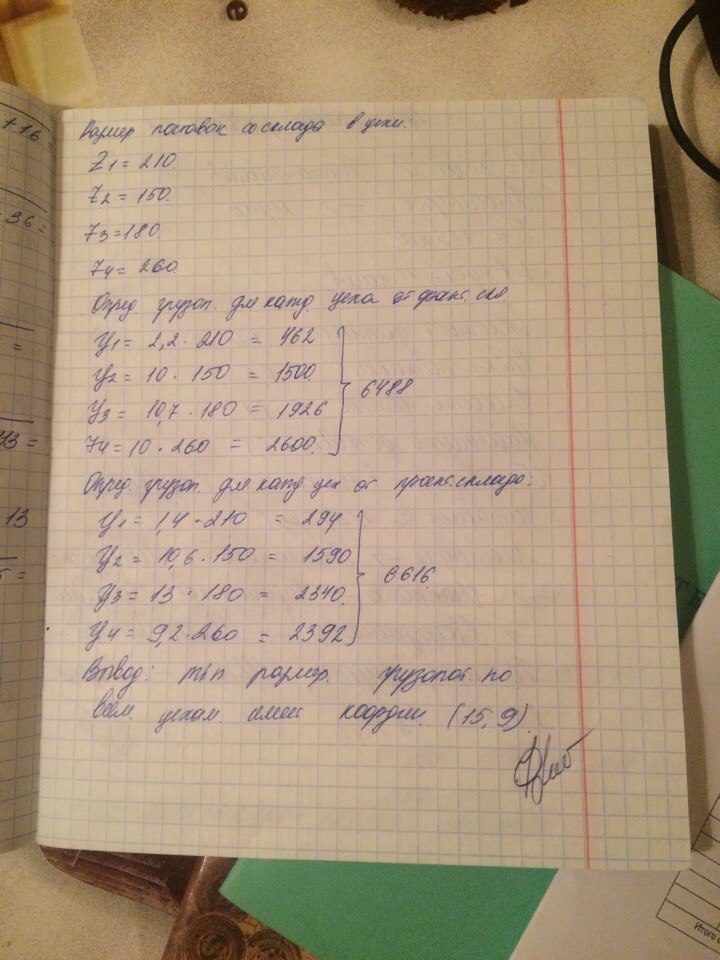 +16 =
36 =
=
13 =
13
5 =
Размер поставок со склада в цехи:
Z1 = 210.
Z2 = 150.
Z3 = 180.
Z4 = 260.
Опред. грузоп. для кажд. цеха от факт. скл.
У1 = 2,2 · 210 = 462
У2 = 10 · 150 = 1500.
У3 = 10,7 · 180 = 1926
У4 = 10 · 260 = 2600.
6488
Опред. грузоп. для кажд цех от проект. склада:
У1 = 1,4 · 210 = 294
У2 = 10,6 · 150 = 1590
У3 = 13 · 180 = 2340.
У4 = 9,2 · 260 = 2392
6616
Вывод: min размер. грузопот по
всем цехам имеет коордим. (15, 9)
Итого